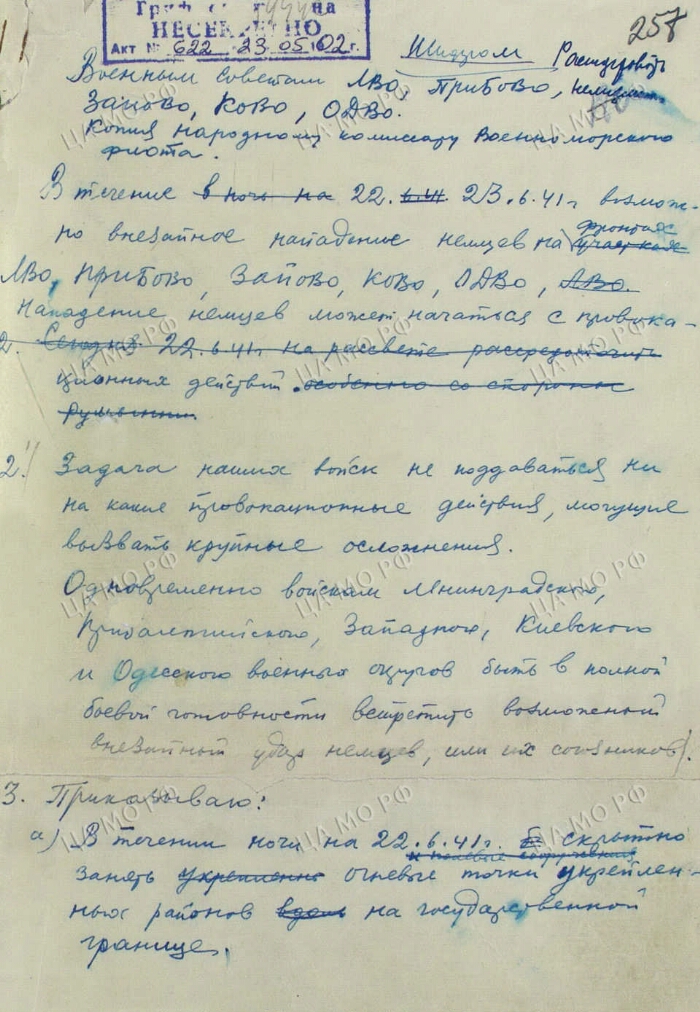 Гриф секретности
НЕСЕКРЕТНО
Акт № 622 23.05.02 г.
258
Шифром
Расшифровать
немедленно
Военным советам ЛВО, ПрибОВО,
ЗапОВО, КОВО, ОДВО.
Копия народному комиссару Военноморского
флота.
В течение в ночь на 22. 6.41 23.6.41 г возмож-
но внезапное нападение немцев на участках фронтах
ЛВО, ПрибОВО, ЗапОВО, КОВО, ОДВО, ЛВО.
Нападение немцев может начаться с провока-
2. Сегодня 22.6.41 г. на рассвете рассредоточить
ционных действий. особенно со стороны
Румынии.
2.) Задача наших войск не поддаваться ни
на какие провокационные действия, могущие
вызвать крупные осложнения.
Одновременно войскам Ленинградского,
Прибалтийского, Западного, Киевского
и Одесского военных округов быть в полной
боевой готовности встретить возможный
внезапный удар немцев, или их союзников.
3. Приказываю:
а) В течении ночи на 22.6.41 г. скрытно
и полевые сооружения
занять укрепленн огневые точки укреплен-
ных районов вдоль на государственной
границе.
ЦА МО РФ
ЦА МО РФ
ЦА МО РФ
ЦА МО РФ
ЦА МО РФ
ЦА МО РФ
ЦА МО РФ
ЦА МО РФ
ЦА МО РФ
ЦА МО РФ
ЦА МО РФ
ЦА МО РФ